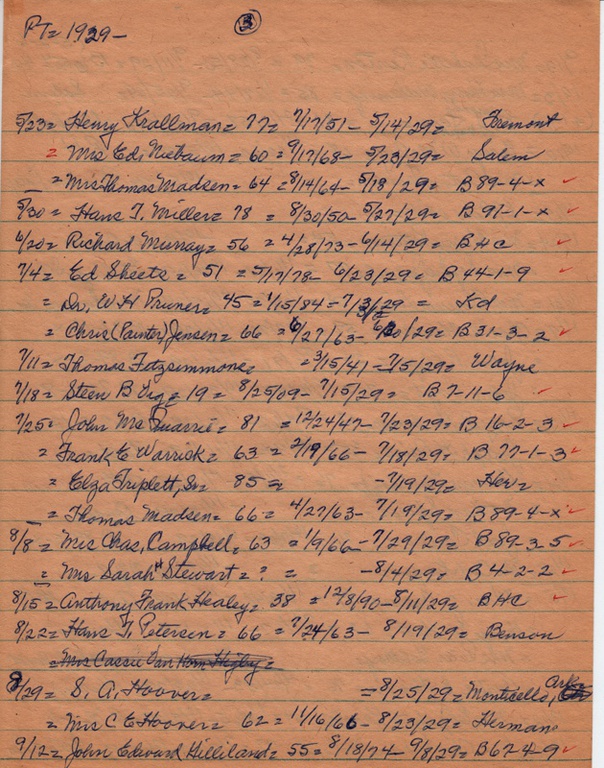 PT= 1929- ③
5/23= Henry Krallman= 77= 7/17/51- 5/14/29= Fremont
= Mrs Ed. Niebaum= 60= 9/17/68- 5/23/29= Salem
= Mrs Thomas Madsen= 64= 8/14/64- 5/18/29= B 89-4-x ✓
5/30= Hans T. Miller= 78= 8/30/50- 5/27/29= B 91-1-x ✓
6/20= Richard Murray= 56= 4/28/73- 6/14/29= BHC ✓
7/4= Ed Sheets= 51= 5/17/78- 6/23/29= B 44-1-9 ✓
= Dr. W H Pruner= 45= 1/15/84- /29= Kd
= Chris (Painter) Jensen= 66= 6/27/63- 6/30/29= B 31-3-2 ✓
7/11= Thomas Fitzsimmons= =3/15/41- 7/5/29= Wayne
7/18= Steen B = 19= 8/25/09- 7/15/29= B 7-11-6 ✓
7/25= John Mc Quarrie= 81= 12/24/47- 7/23/29= B 16-2-3 ✓
= Frank E Warrick= 63= 2/19/66- 7/18/29= B 77-1-3 ✓
= Elza Triplett, Sr= 85= -7/19/29= Her=
= Thomas Madsen= 66= 4/27/63- 7/19/29= B 89-4-x ✓
8/8= Mrs Chas, Campbell= 63= 1/9/66- 7/29/29= B 89-3-5 ✓
= Mrs Sarah H Stewart= ?= -8/4/29= B 4-2-2 ✓
8/15= Anthony Frank Healey= 38= 12/8/90- 8/11/29= BHC ✓
8/22= Hans T. Petersen= 66= 7/24/63- 8/19/29= Benson
= Mrs Cassie Van Horn Higby=
8/29= S. A. Hoover= =8/25/29= Monticello, Ark
= Mrs C E Hoover= 62= 11/16/66- 8/23/29= Herman
9/12= John Edward Gilliland= 55= 8/18/74- 9/8/29= B 62-4-9 ✓